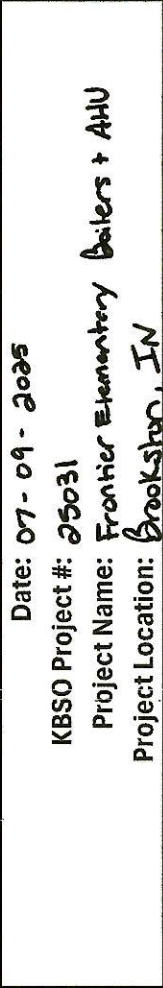 Date: 07-09-2025
KBSO Project #: 25031
Project Name: Frontier Elementary Boilers + AHU
Project Location: Brookston, IN